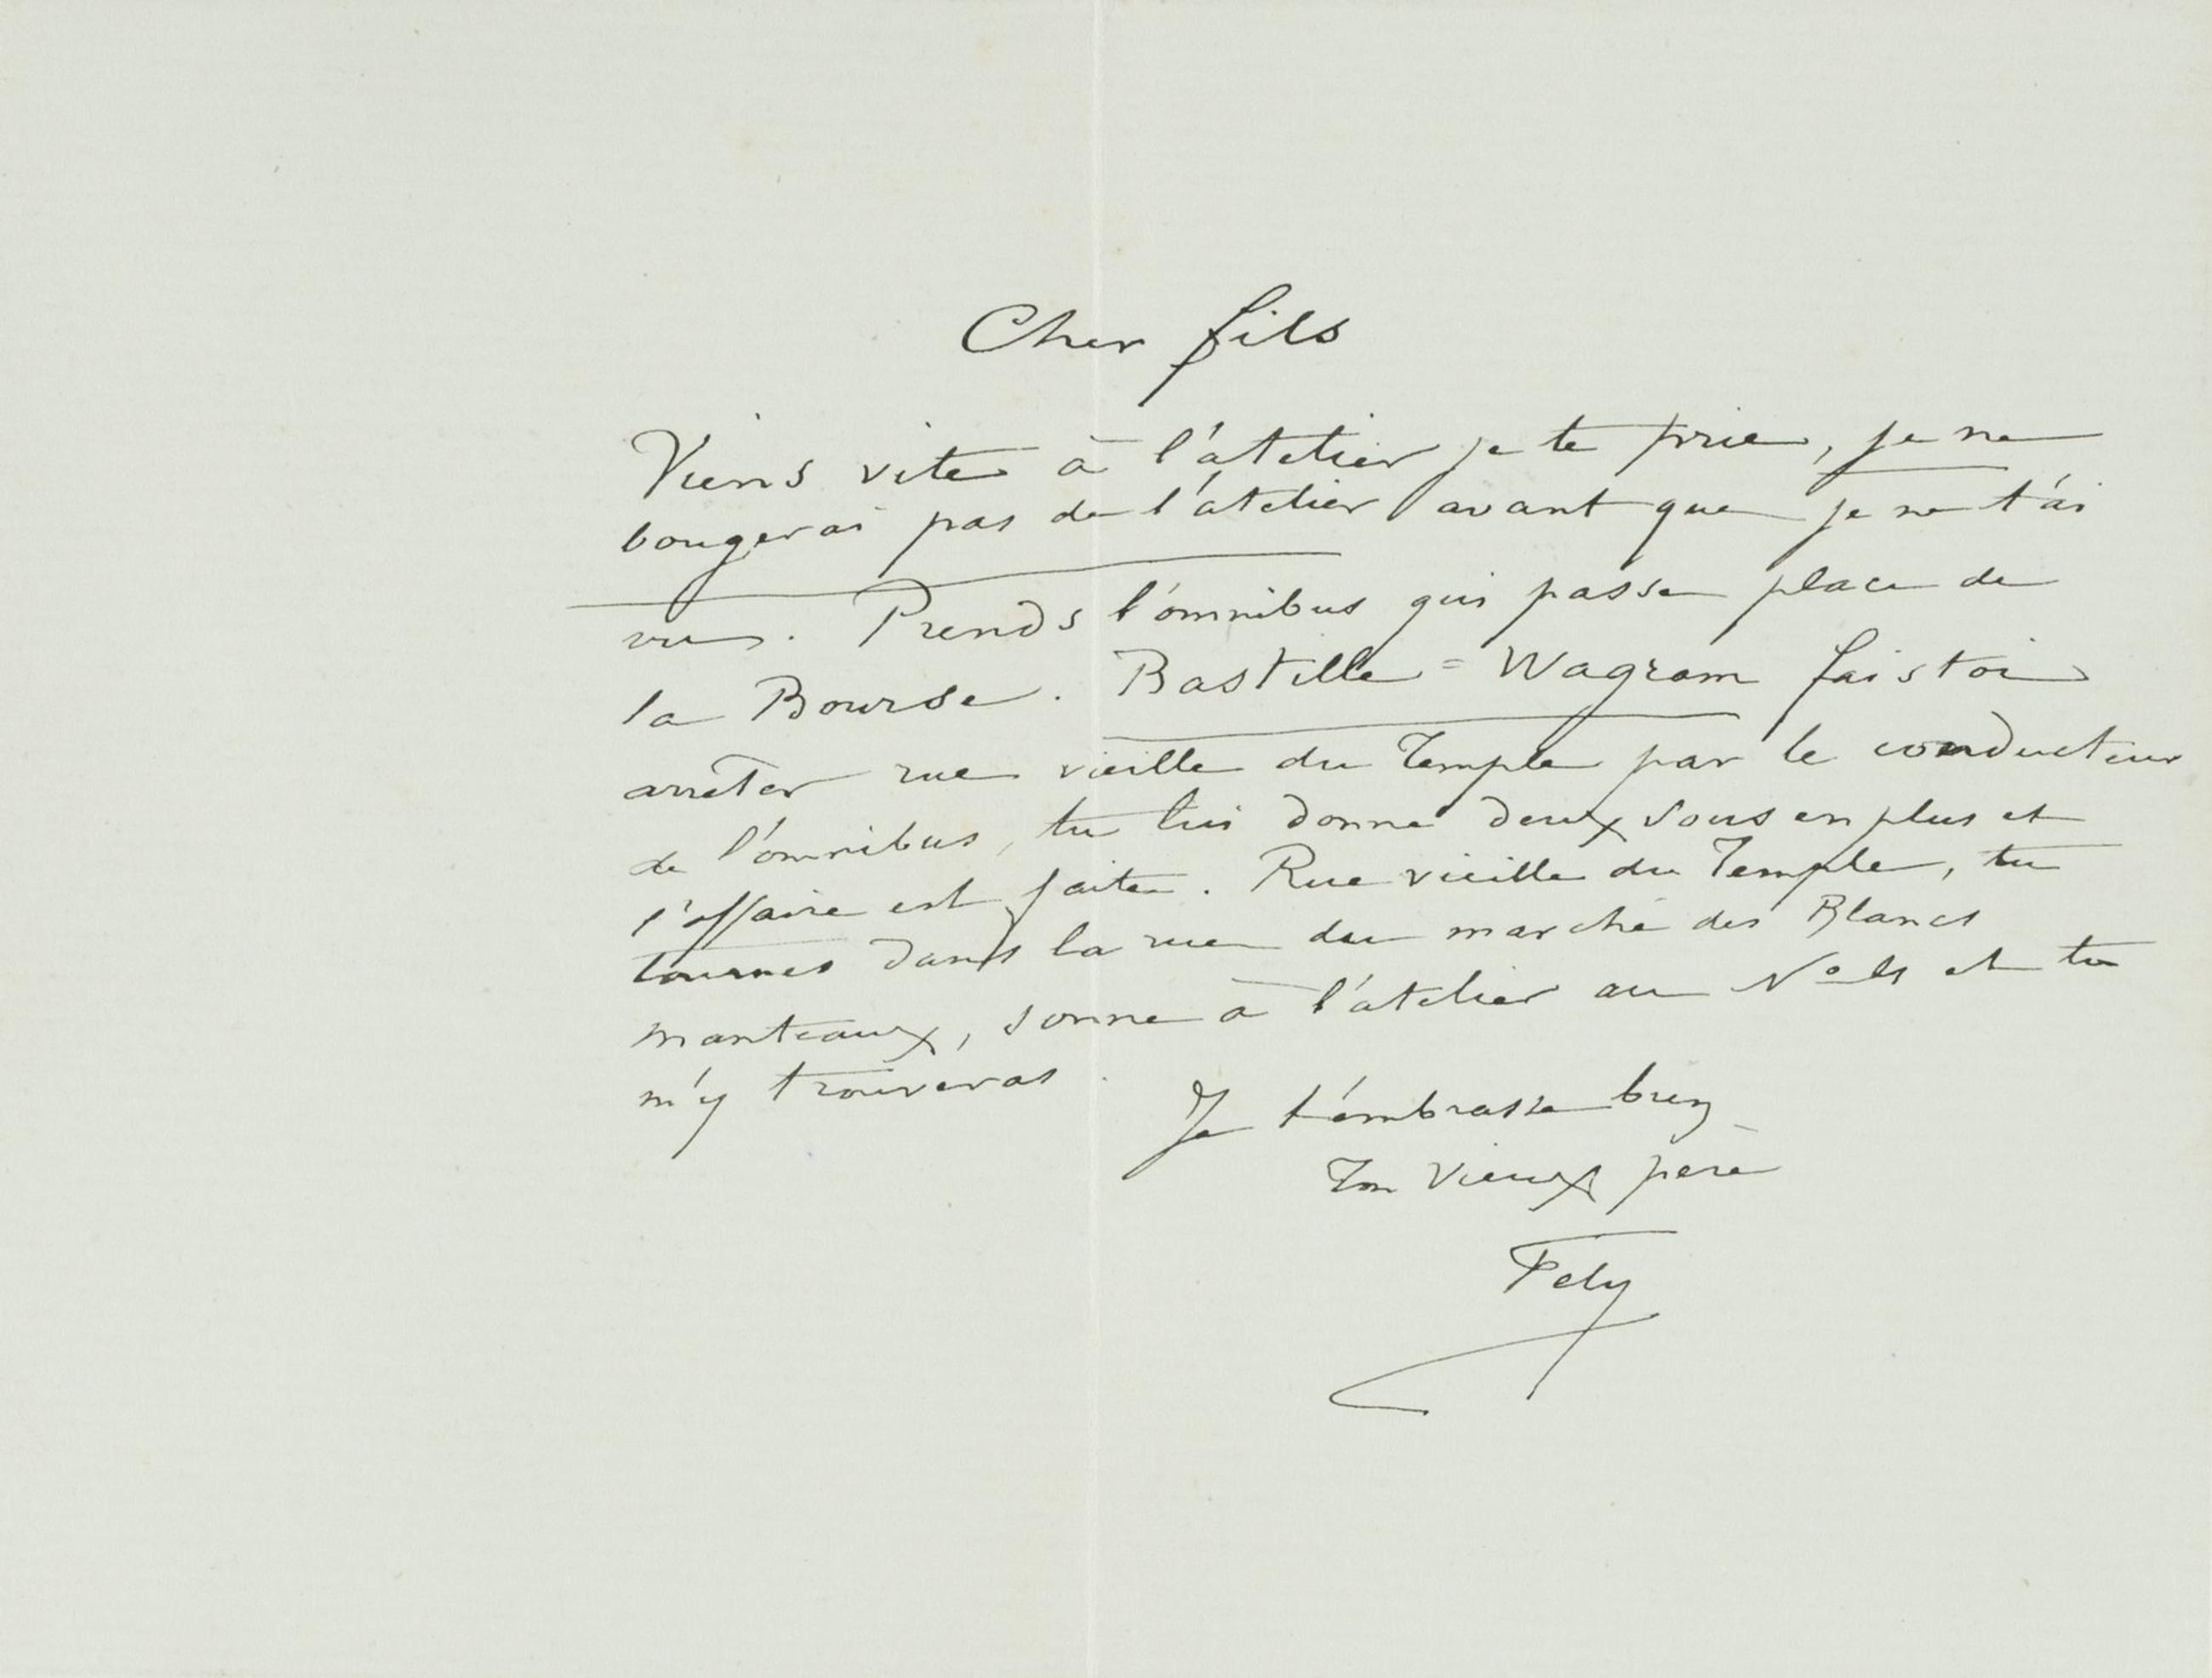 Cher fils
Viens vite à l'atelier je te prie, je ne
bougerai pas de l'atelier avant que je ne t'ai
vu. Prends l'omnibus qui passe place de
la Bourse. Bastille = Wagram fais toi
arrêter rue vieille du Temple par le conducteur
de l'omnibus, tu lui donne deux sous en plus et
l'affaire est faite. Rue vieille du Temple, tu
tournes dans la rue du marché des Blancs
manteaux, sonne à l'atelier au No et tu
m'y trouveras.
Je t'embrasse bien
Ton vieux père
Fely